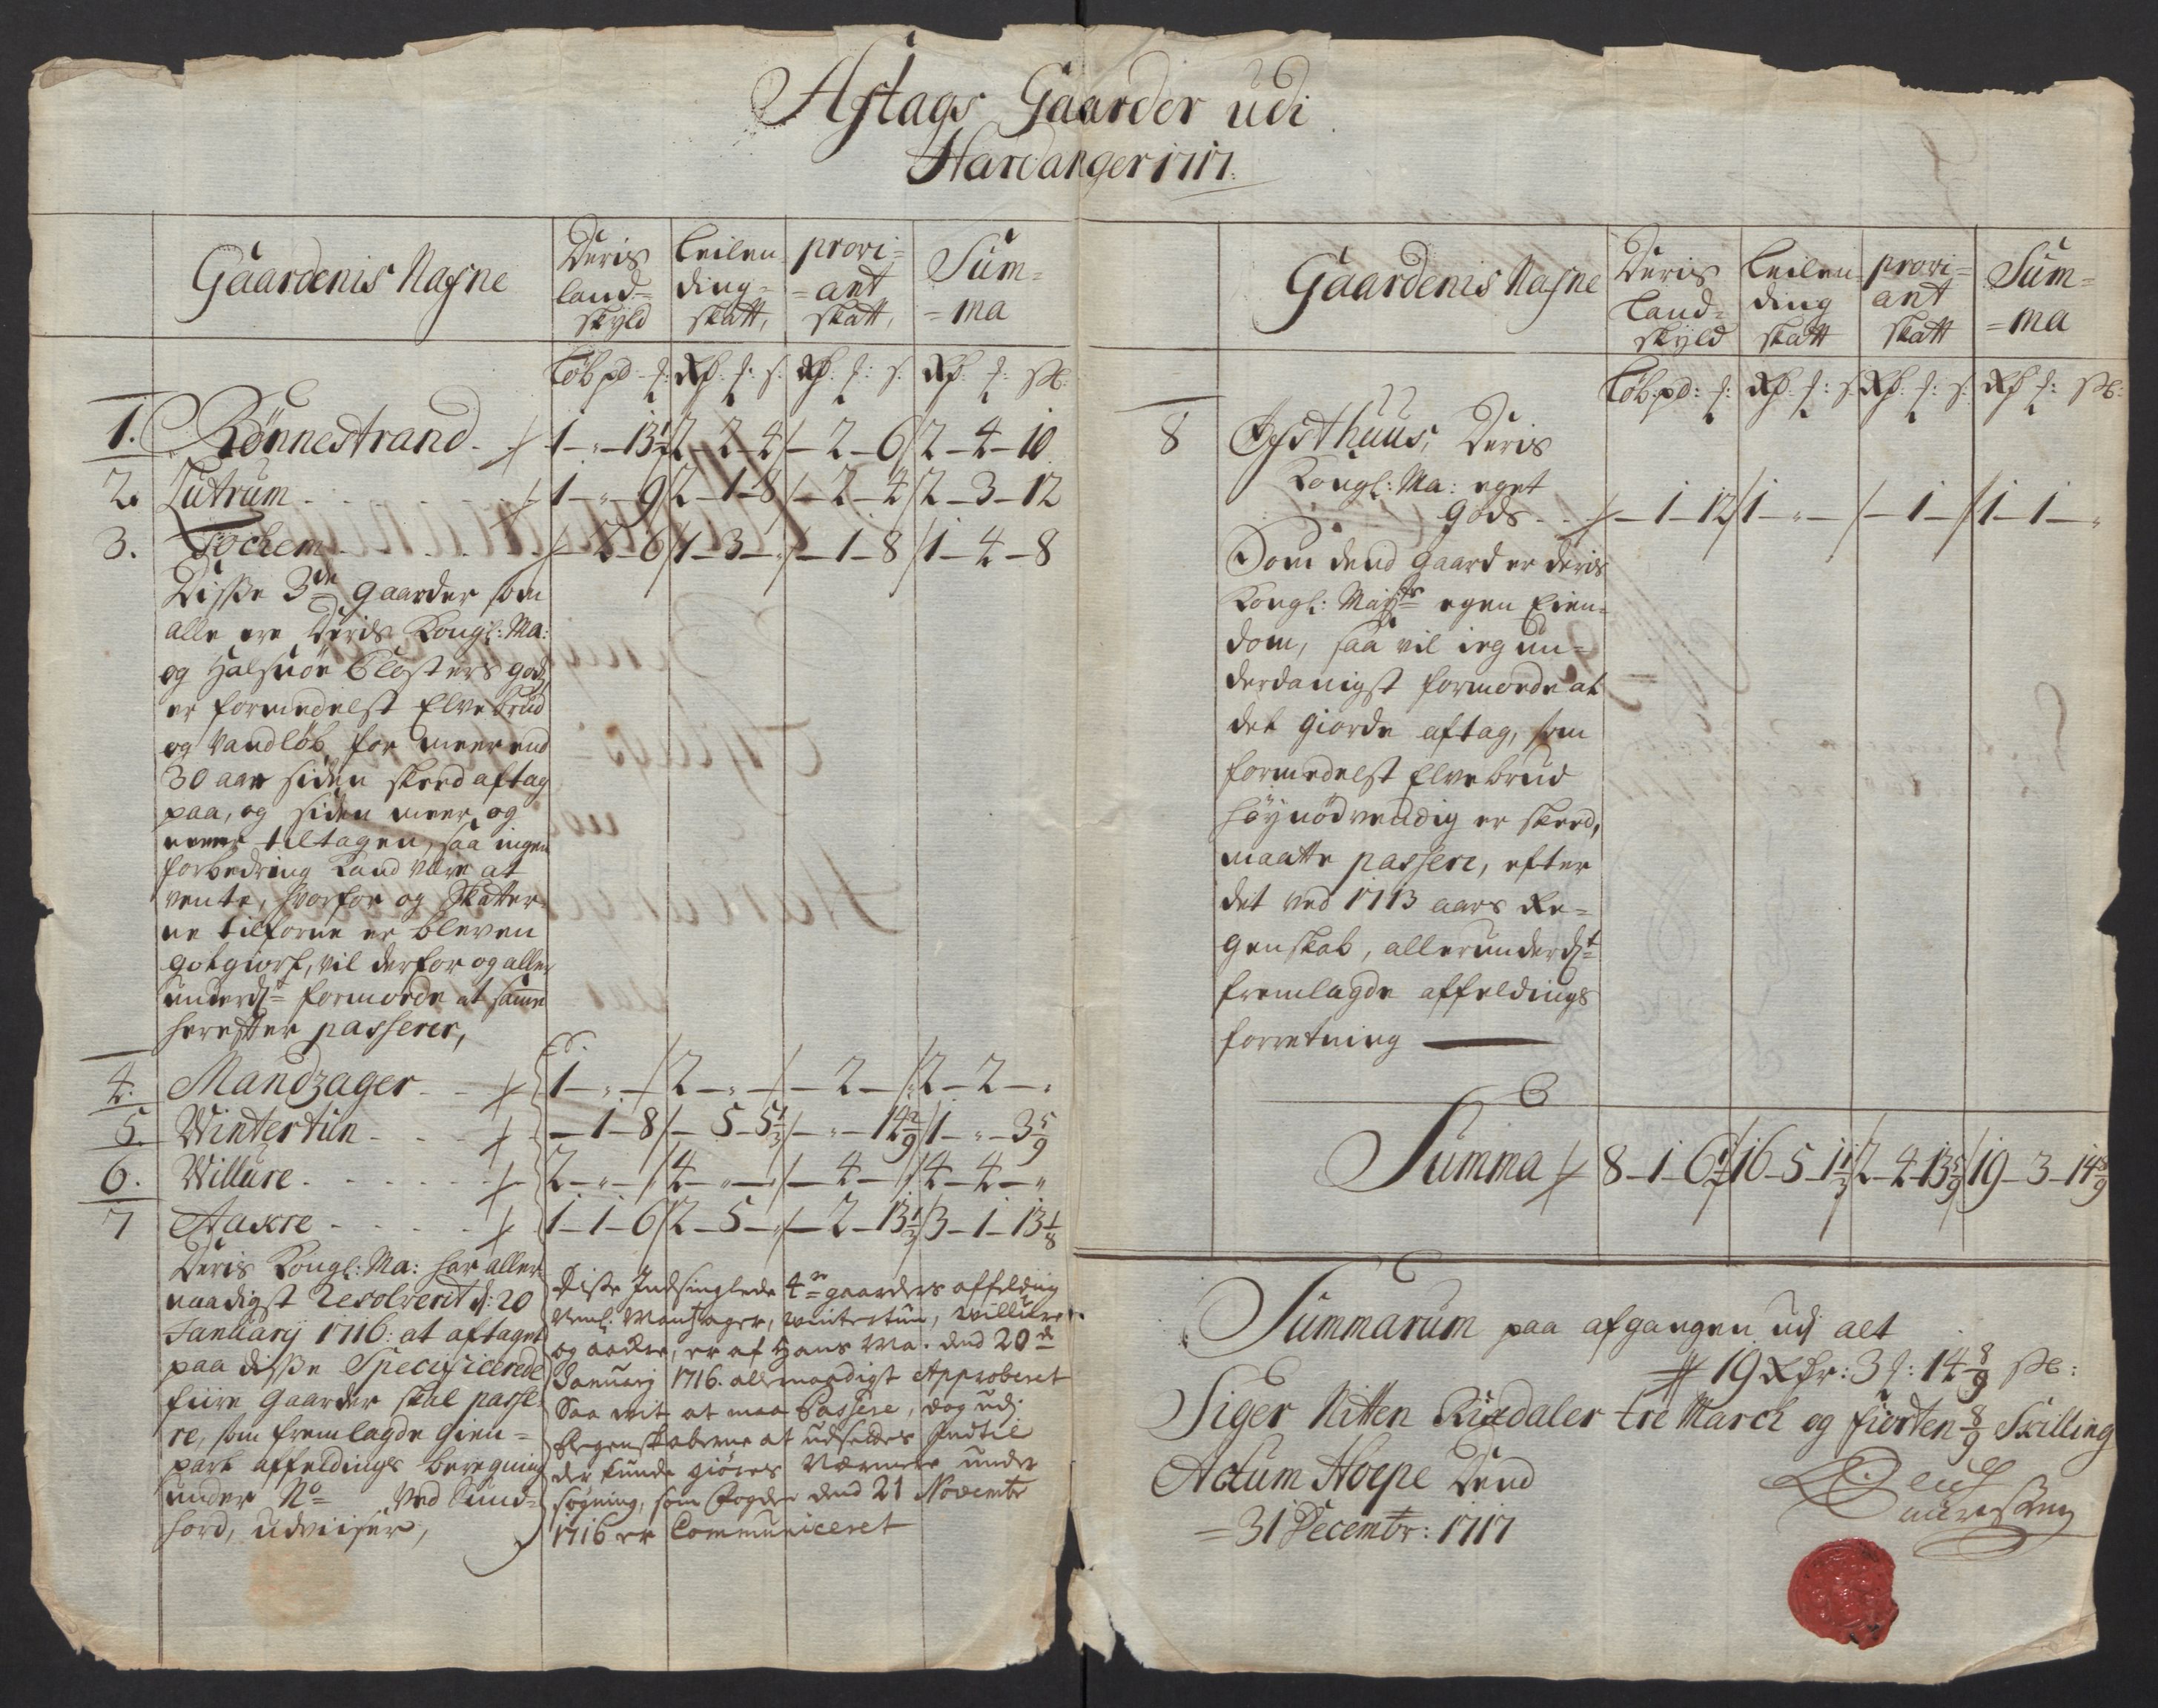 Aftags Gaarder udi
Hardanger 1717.
Gaardenis Nafne
Deris land= skyld
Leilen ding= skatt,
provi= =ant skatt,
Sum= =ma
Løb pd
1. Rönnestrand 1 - " - 13½ 2 - 2 - 4 - 2 - 6 2 - 4 - 10
2. Lutrum 1 - " - 9 2 - 1 - 8 - 2 - 4 2 - 3 - 12
3. Tochem - 2 - 6 1 - 3 - " - 1 - 8 1 - 4 - 8
Disse 3de gaarder som
alle ere Deris Kongl: Ma:
og Halsnöe Closters gods,
er formedelst Elvebrud
og Vandløb for meer end
30 aar siden skeed aftag
paa, og siden meer og
meer tiltagen, saa ingen
forbedring kand være at
vente, hvorfor og Skatter
ne tilforne er bleven
gotgiort, vil derfor og aller
underdst formode at samme
herefter passerer,
4. Mandzager 1 - " - 2 - " - - 2 - 2 - 2 - "
5. Wintertun - 1 - 8 - 5 - 5⅓ - " - 14 2/9 1 - " - 3 5/9
6. Willure 2 - " - 4 - " - - 4 - 4 - 4 - "
7 Aakre 1 - 1 - 6 2 - 5 - " - 2 - 13⅓ 3 - 1 - 13⅓
Deris Kongl: Ma: har aller
naadigst Resolverit d: 20
January 1716: at aftaget
paa disse Specificerede
fiire gaarder skal passe-
re, som fremlagde Gien=
part affeldings beregning
under No ved Sund=
hord, udviiser,
Diste Indsinglede 4re gaarders affelding
Nemlig: Mandzager, wintertun, willure
og aakre, er af Hans Ma: dend 20de
January 1716. allernaadigst Approberet
Saa vit at maa Passere, dog udj
Regenskaberne at udføldes Indtil
der kunde giöres Nærmere under
søgning, som fogden dend 21 Novembr
1716 er Communiceret
Gaardenis Nafne
Deris Land= skyld
Leilen= ding skatt
provi= ant skatt
Sum= =ma
Løb. pd:
8 Jysthuus, Deris
Kongl: Ma: eget
gods - 1 - 12 1 - " - - 1 - 1 - 1 - "
Som dend gaard er Deris
Kongl: Mayts egen Eien=
dom, saa vil ieg un=
derdanigst formode at
det giorde aftag, som
formedelst Elvebrud
höynödvendig er skeed,
maatte passere, efter
det ved 1713 aars Re=
genskab, allerunderdst
fremlagde affeldings
forretning
Summa 8 - 1 - 6½ 16 - 5 - 1⅓ 2 - 4 - 13 5/9 19 - 3 - 14 8/9
Summarum paa afgangen udj alt
19 Rdr: 3 : 14 8/9
Siger Nitten Rixdaler tre March og fiorten 8/9 Skilling
Actum Hoepe Dend
=31 Decembr: 1717